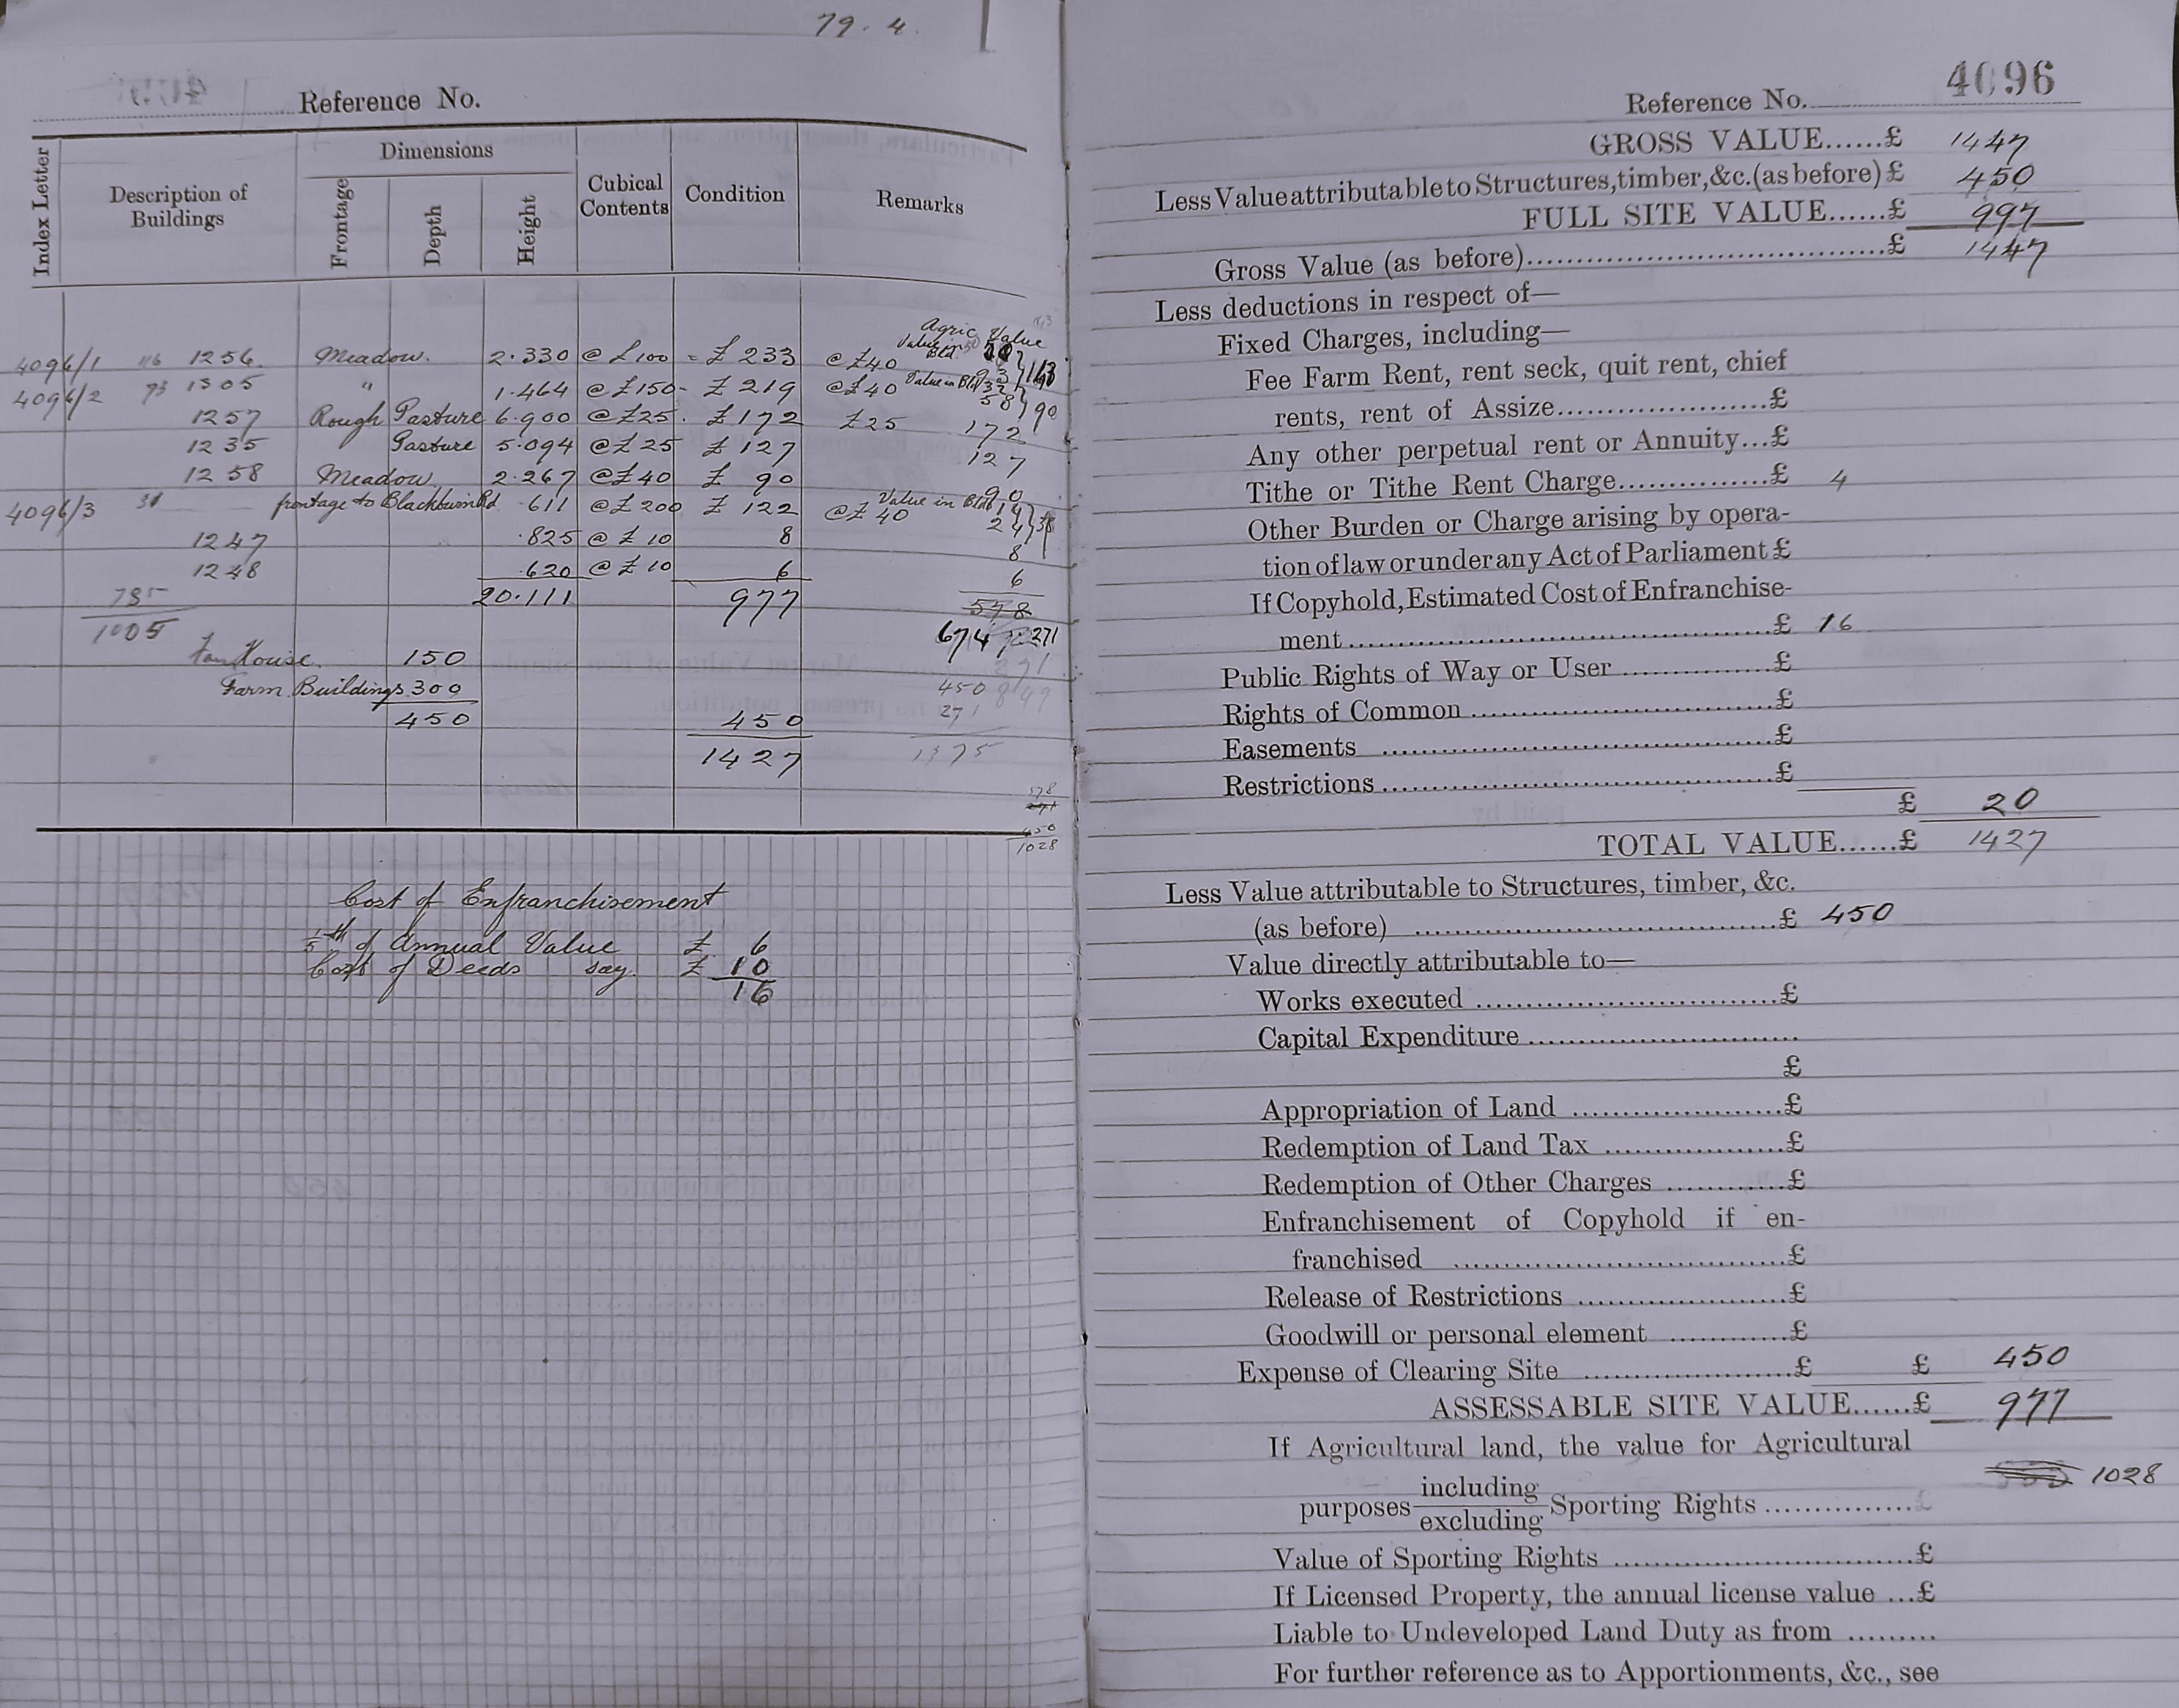 79. 4.
Reference No.
Index Letter
Description of Buildings
Dimensions
Frontage
Depth
Height
Cubical Contents
Condition
Remarks
Agric Value
4096/1 116 1256. Meadow. 2.330 @ £100 = £ 233 @ £40 Value in Bld. 93 } 143
4096/2 73 1305 " 1.464 @ £150 - £ 219 @ £40 Value in Bld 32 58 } 90
1257 Rough Pasture 6.900 @ £25. £ 172 £25 172
1235 Pasture 5.094 @ £25 £ 127 127
1258 Meadow. 2.267 @ £40 £ 90 90
4096/3 31 frontage to Blackburn Rd .611 @ £200 £ 122 @ £40 Value in Bld 14 24 } 38
1247 .825 @ £10 8 8
1248 .620 @ £10 6 6
785 20.111 977 578
1005 674 271
House. 150
Farm Buildings 300 450 849
450 450 271
1427 1375
578
450
1028
Cost of Enfranchisement
1/5th of Annual Value £ 6
Cost of Deeds say. £ 10
16
4096
Reference No.
GROSS VALUE......£ 1447
Less Value attributable to Structures, timber, &c. (as before) £ 450
FULL SITE VALUE......£ 997
Gross Value (as before)......£ 1447
Less deductions in respect of—
Fixed Charges, including—
Fee Farm Rent, rent seck, quit rent, chief
rents, rent of Assize......£
Any other perpetual rent or Annuity...£
Tithe or Tithe Rent Charge......£ 4
Other Burden or Charge arising by opera-
tion of law or under any Act of Parliament £
If Copyhold, Estimated Cost of Enfranchise-
ment......£ 16
Public Rights of Way or User......£
Rights of Common......£
Easements ......£
Restrictions......£
£ 20
TOTAL VALUE......£ 1427
Less Value attributable to Structures, timber, &c.
(as before) ......£ 450
Value directly attributable to—
Works executed ......£
Capital Expenditure ......
£
Appropriation of Land ......£
Redemption of Land Tax ......£
Redemption of Other Charges ......£
Enfranchisement of Copyhold if en-
franchised ......£
Release of Restrictions ......£
Goodwill or personal element ......£
Expense of Clearing Site ......£ £ 450
ASSESSABLE SITE VALUE......£ 977
If Agricultural land, the value for Agricultural
purposes including excluding Sporting Rights ......£ 1028
Value of Sporting Rights ......£
If Licensed Property, the annual license value ...£
Liable to Undeveloped Land Duty as from ......
For further reference as to Apportionments, &c., see